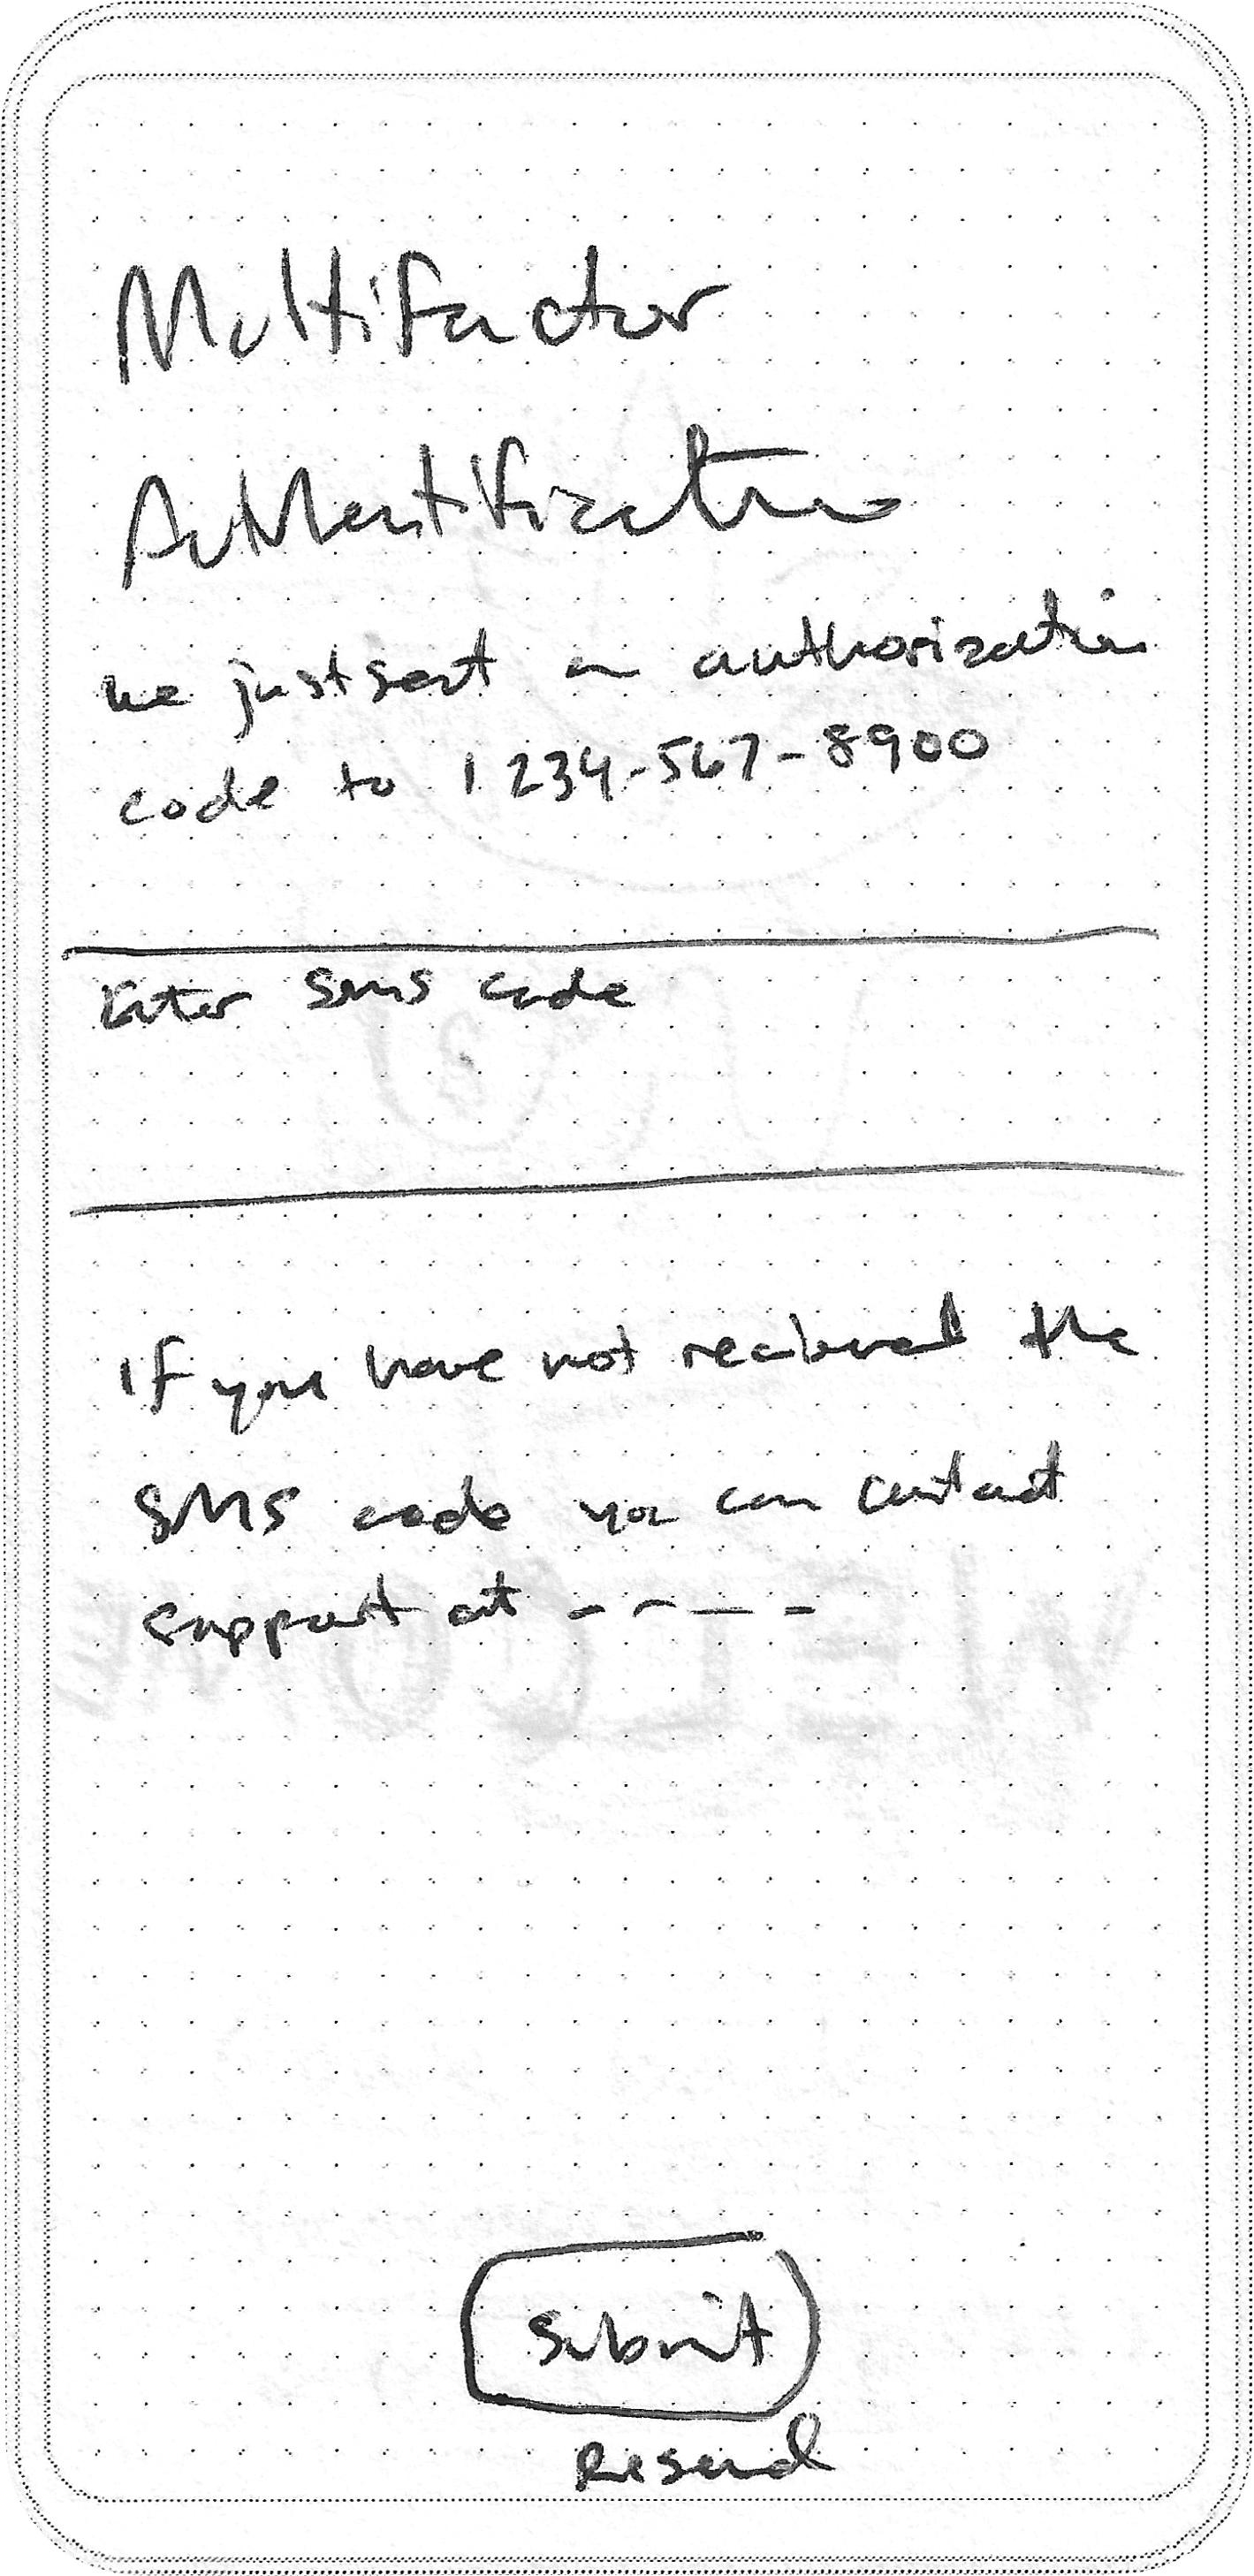 Multifactor
Authentification
we just sent an authorization
code to 1 234-567-8900
Enter SMS code
If you have not recieved the
SMS code you can contact
support at - - - -
Submit
Resend